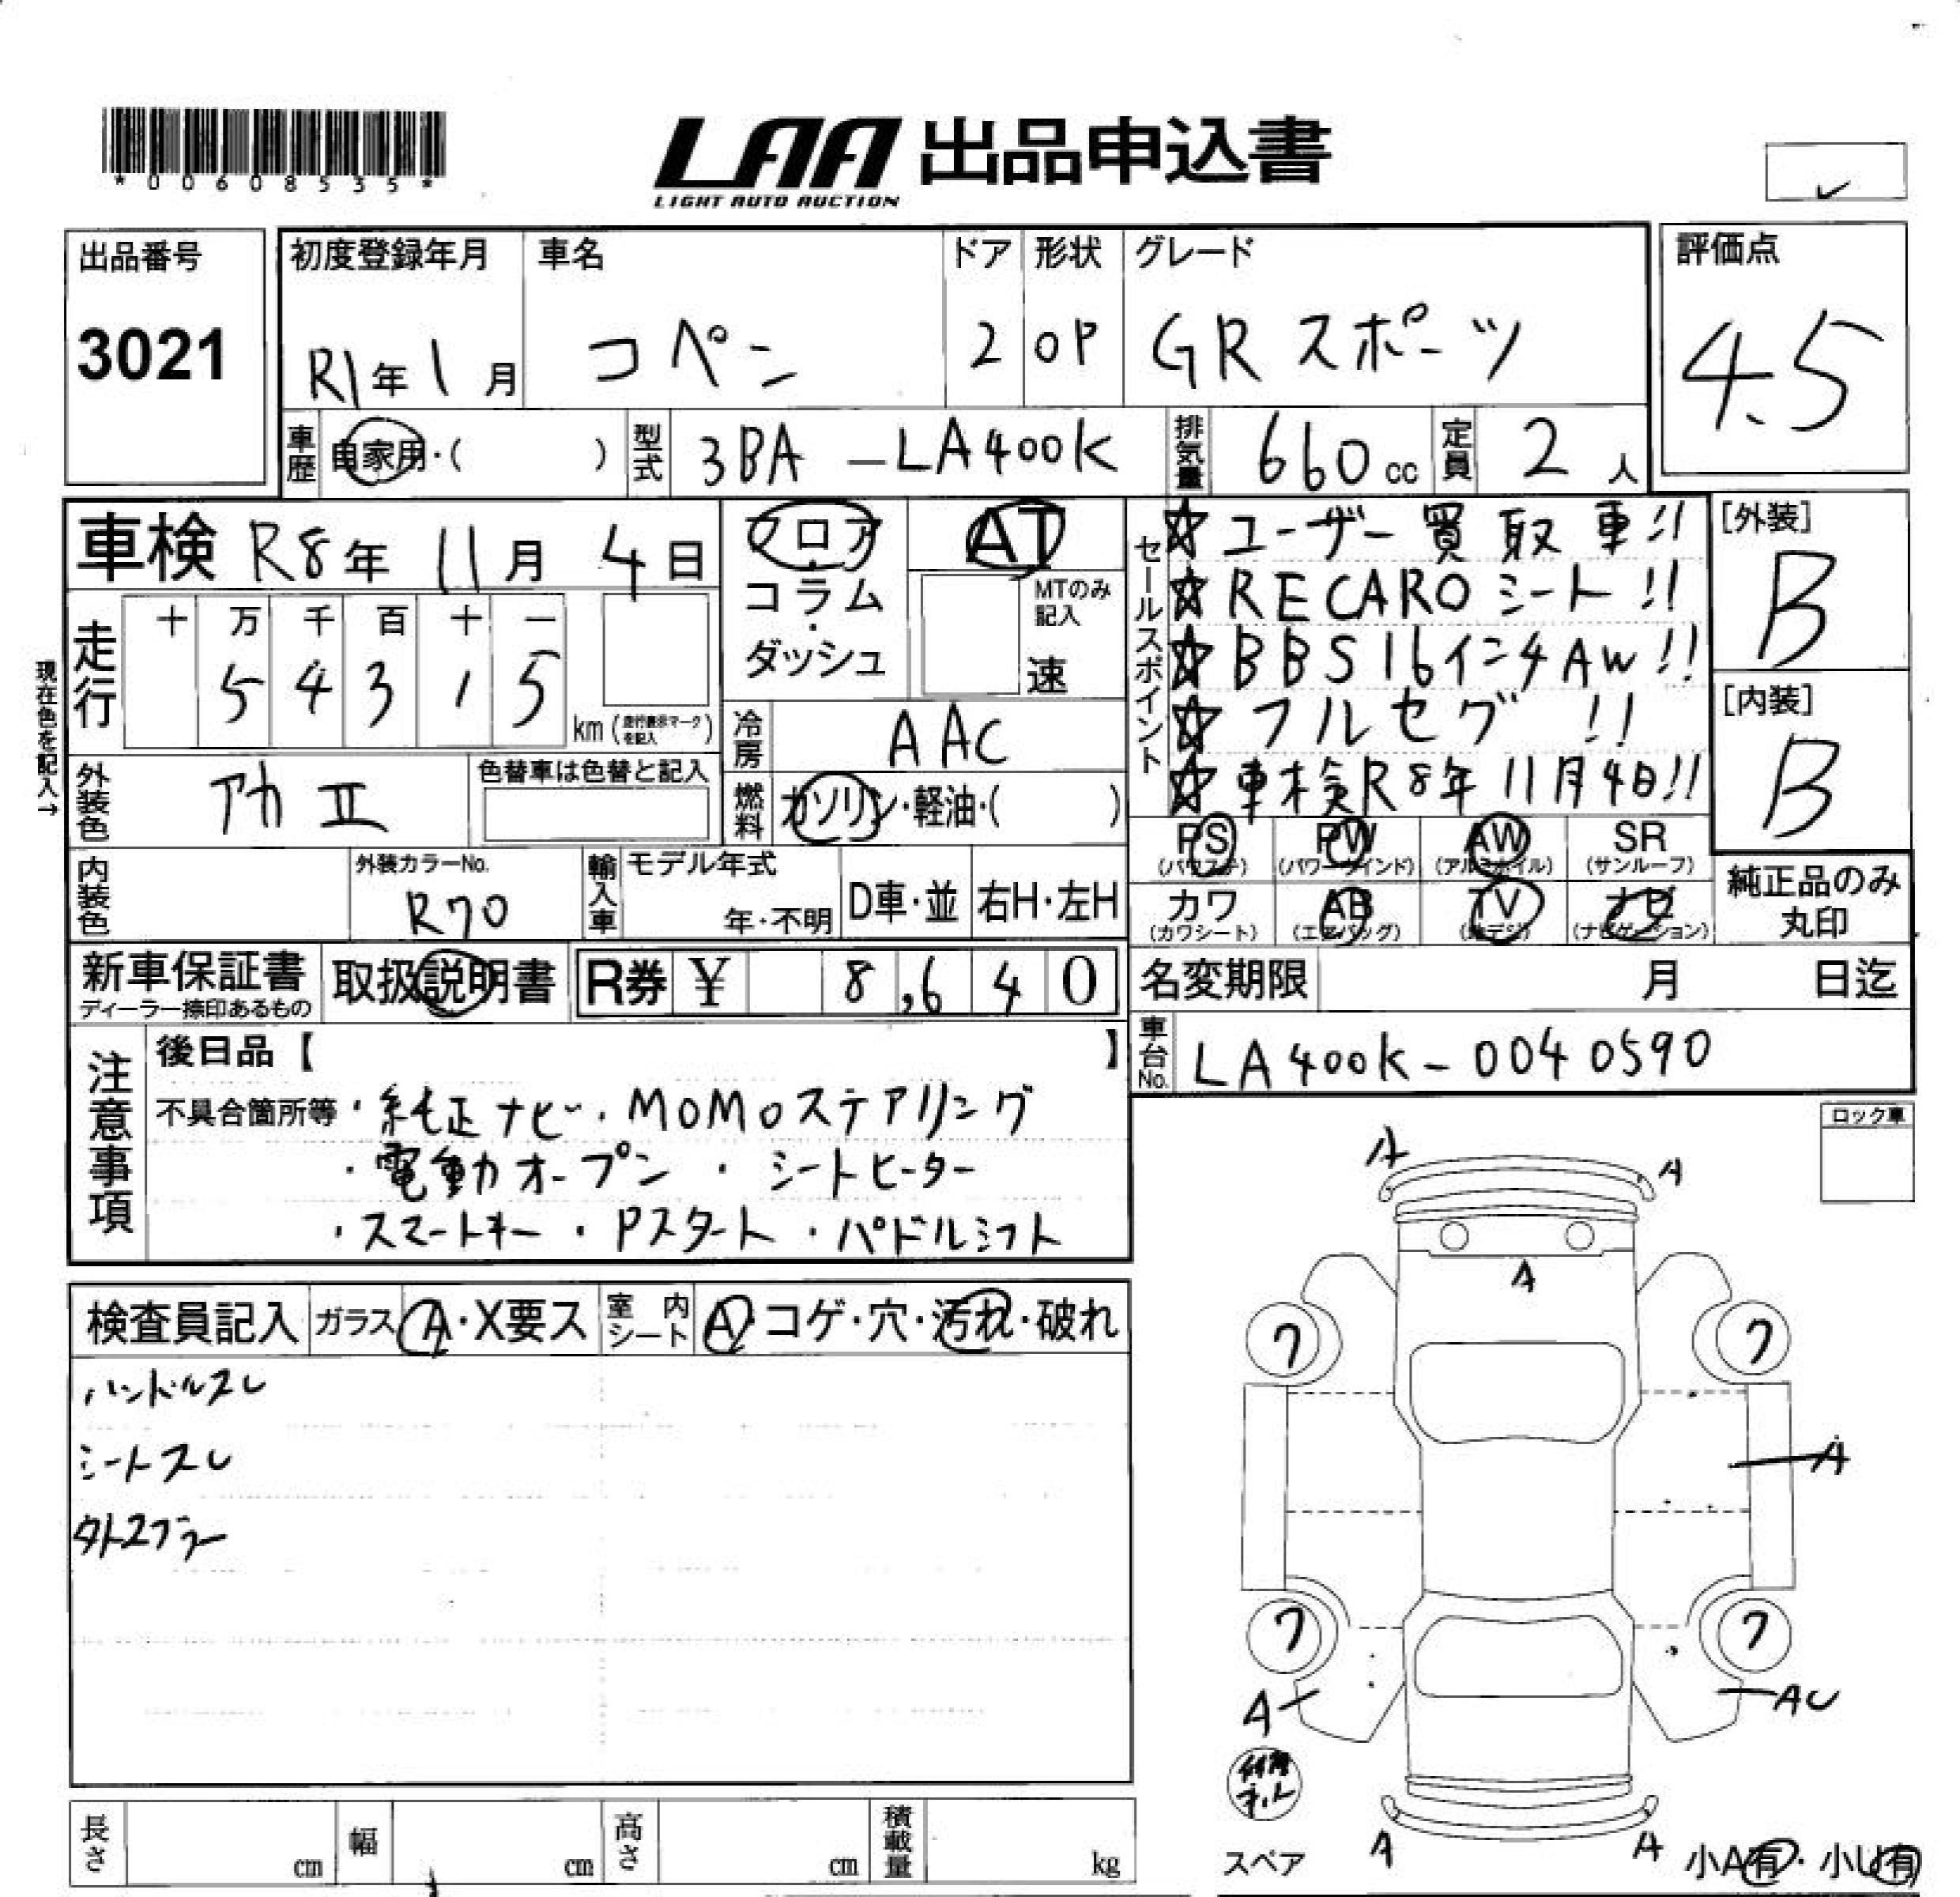 *00608535*
LAA 出品申込書
LIGHT AUTO AUCTION
出品番号
3021
初度登録年月 車名 ドア 形状 グレード
R1年1月 コペン 2 OP GRスポーツ
評価点
4.5
車歴 自家用・( ) 型式 3BA-LA400K 排気量 660cc 定員 2人
車検 R8年11月4日
フロア・コラム・ダッシュ
AT
MTのみ記入
速
セールスポイント
☆ユーザー買取車!!
☆RECAROシート!!
☆BBS16インチAW!!
☆フルセグ!!
☆車検R8年11月4日!!
[外装]
B
[内装]
B
現在色を記入→
走行 十 万 千 百 十 一
5 4 3 1 5
km(走行表示マークを記入)
冷房 AAC
外装色 アカII 色替車は色替と記入
燃料 ガソリン・軽油・( )
PS(パワステ) PW(パワーウインド) AW(アルミホイル) SR(サンルーフ)
カワ(カワシート) AB(エアバッグ) TV(地デジ) ナビ(ナビゲーション)
純正品のみ丸印
内装色 外装カラーNo. R70
輸入車 モデル年式 年・不明 D車・並 右H・左H
新車保証書 ディーラー捺印あるもの 取扱説明書 R券 ¥ 8,640
名変期限 月 日迄
車台No. LA400K-0040590
注意事項
後日品【 】
不具合箇所等・純正ナビ・MOMOステアリング
・電動オープン・シートヒーター
・スマートキー・Pスタート・パドルシフト
ロック車
検査員記入 ガラス A・X要ス 室内シート A・コゲ・穴・汚れ・破れ
ハンドルスレ
シートスレ
A
A
A
ワ ワ
A
ワ ワ
A AU
A A
スペア 小A有・小U有
長さ cm 幅 cm 高さ cm 積載量 kg